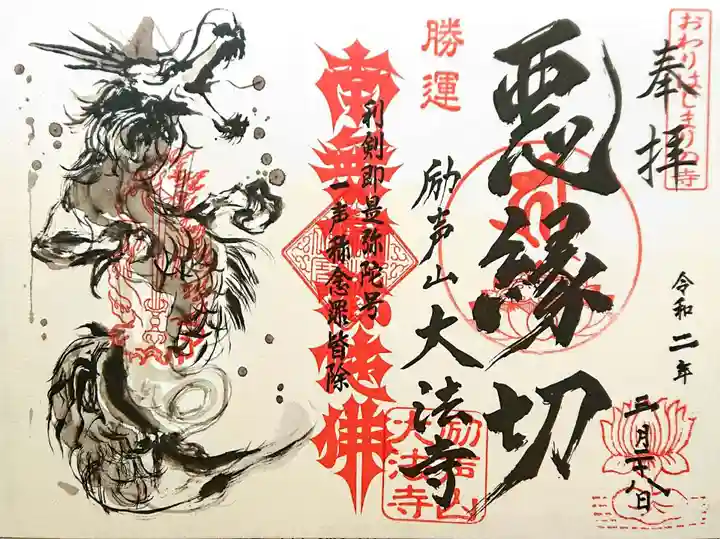 おわりはじまりの寺
奉拝
令和二年
三月二十八日
悪縁切
勝運
励声山大法寺
励声山
大法寺
利剣即是弥陀号
一声称念罪皆除
南無阿弥陀佛